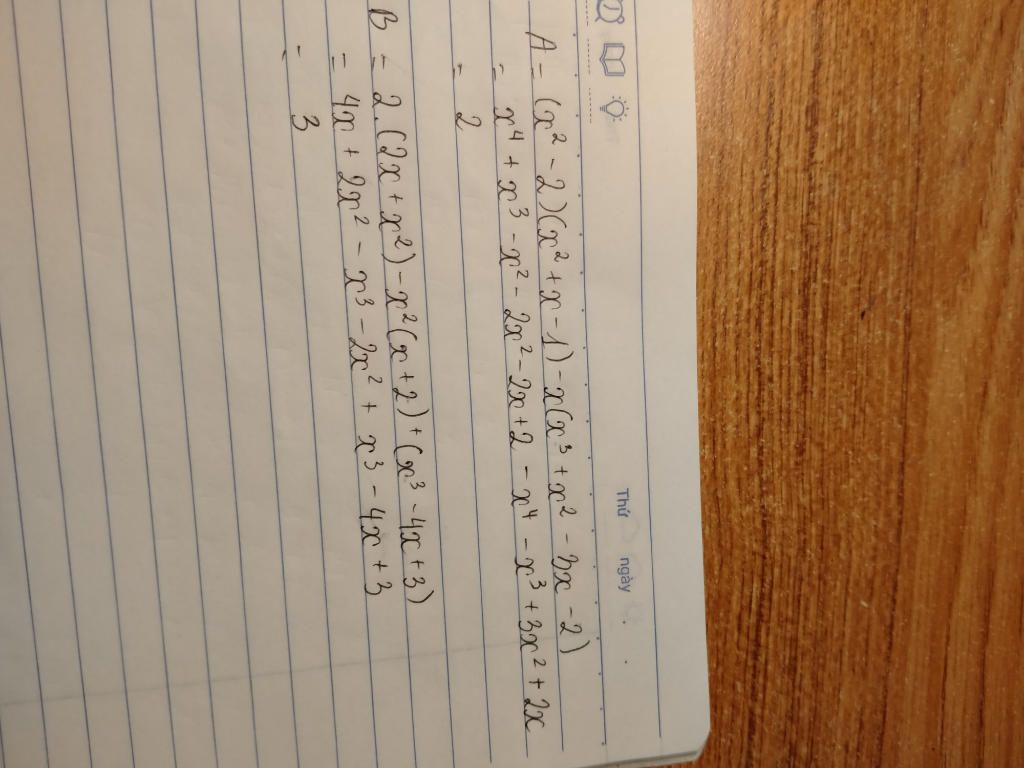 Thứ ngày
A = (x² - 2)(x² + x - 1) - x(x³ + x² - 3x - 2)
= x⁴ + x³ - x² - 2x² - 2x + 2 - x⁴ - x³ + 3x² + 2x
= 2
B = 2.(2x + x²) - x²(x + 2) + (x³ - 4x + 3)
= 4x + 2x² - x³ - 2x² + x³ - 4x + 3
= 3